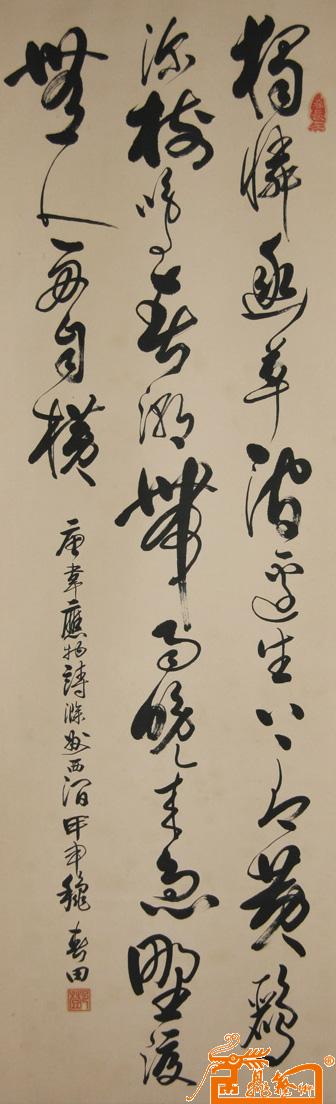 獨憐幽草澗邊生上有黃鸝
深樹鳴春潮帶雨晚來急野渡
無人舟自橫
唐韋應物詩滁州西澗甲申穐春田